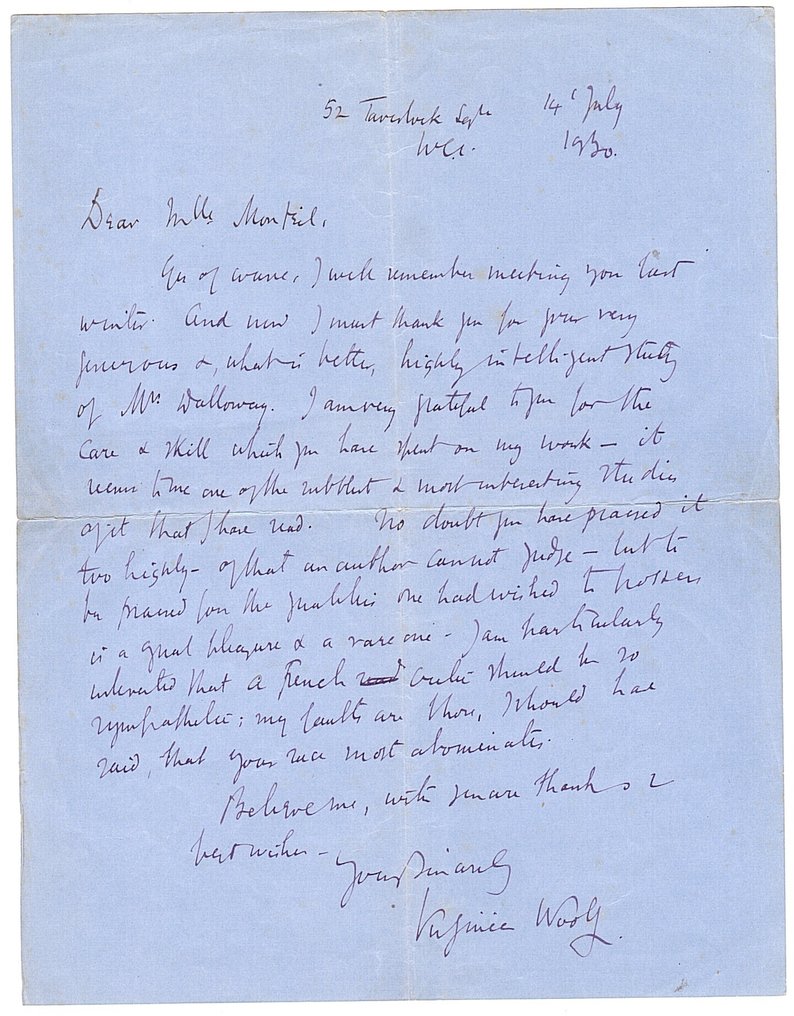 52 Tavistock Sqre 14th July
W.C.1. 1930.
Dear Mlle Monteil,
Yes of course, I well remember meeting you last
winter. And now I must thank you for your very
generous &, what is better, highly intelligent study
of Mrs Dalloway. I am very grateful to you for the
care & skill which you have spent on my work — it
seems to me one of the subtlest & most interesting studies
of it that I have read. No doubt you have praised it
too highly — of that an author cannot judge — but to
be praised for the qualities one had wished to possess
is a great pleasure & a rare one. I am particularly
interested that a French critic should be so
sympathetic; my faults are those, I should have
said, that your race most abominates.
Believe me, with sincere thanks &
best wishes —
Yours sincerely
Virginia Woolf.